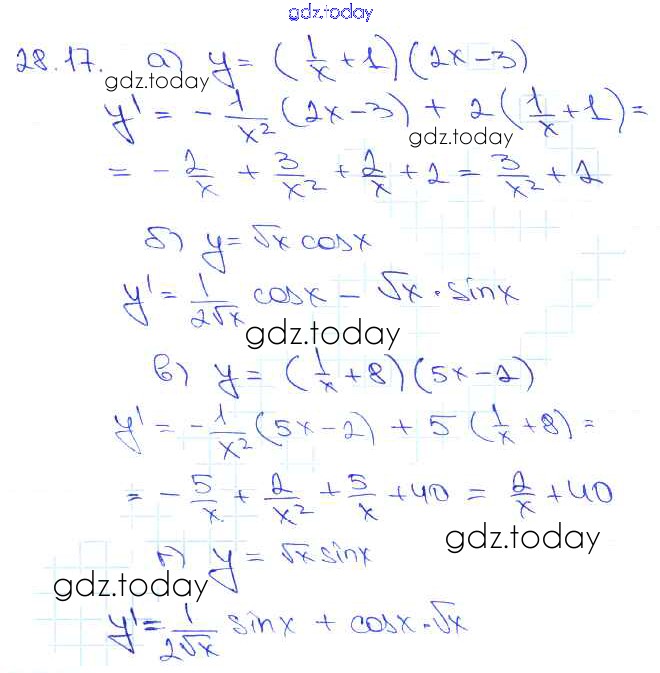 gdz.today
28.17. а) y = (1/x + 1)(2x − 3)
gdz.today
y' = − 1/x² (2x − 3) + 2(1/x + 1) =
gdz.today
= − 2/x + 3/x² + 2/x + 2 = 3/x² + 2
б) y = √x cosx
y' = 1/2√x cosx − √x · sinx
gdz.today
в) y = (1/x + 8)(5x − 2)
y' = − 1/x² (5x − 2) + 5 (1/x + 8) =
= − 5/x + 2/x² + 5/x + 40 = 2/x + 40
gdz.today
г) y = √x sinx
gdz.today
y' = 1/2√x sinx + cosx · √x